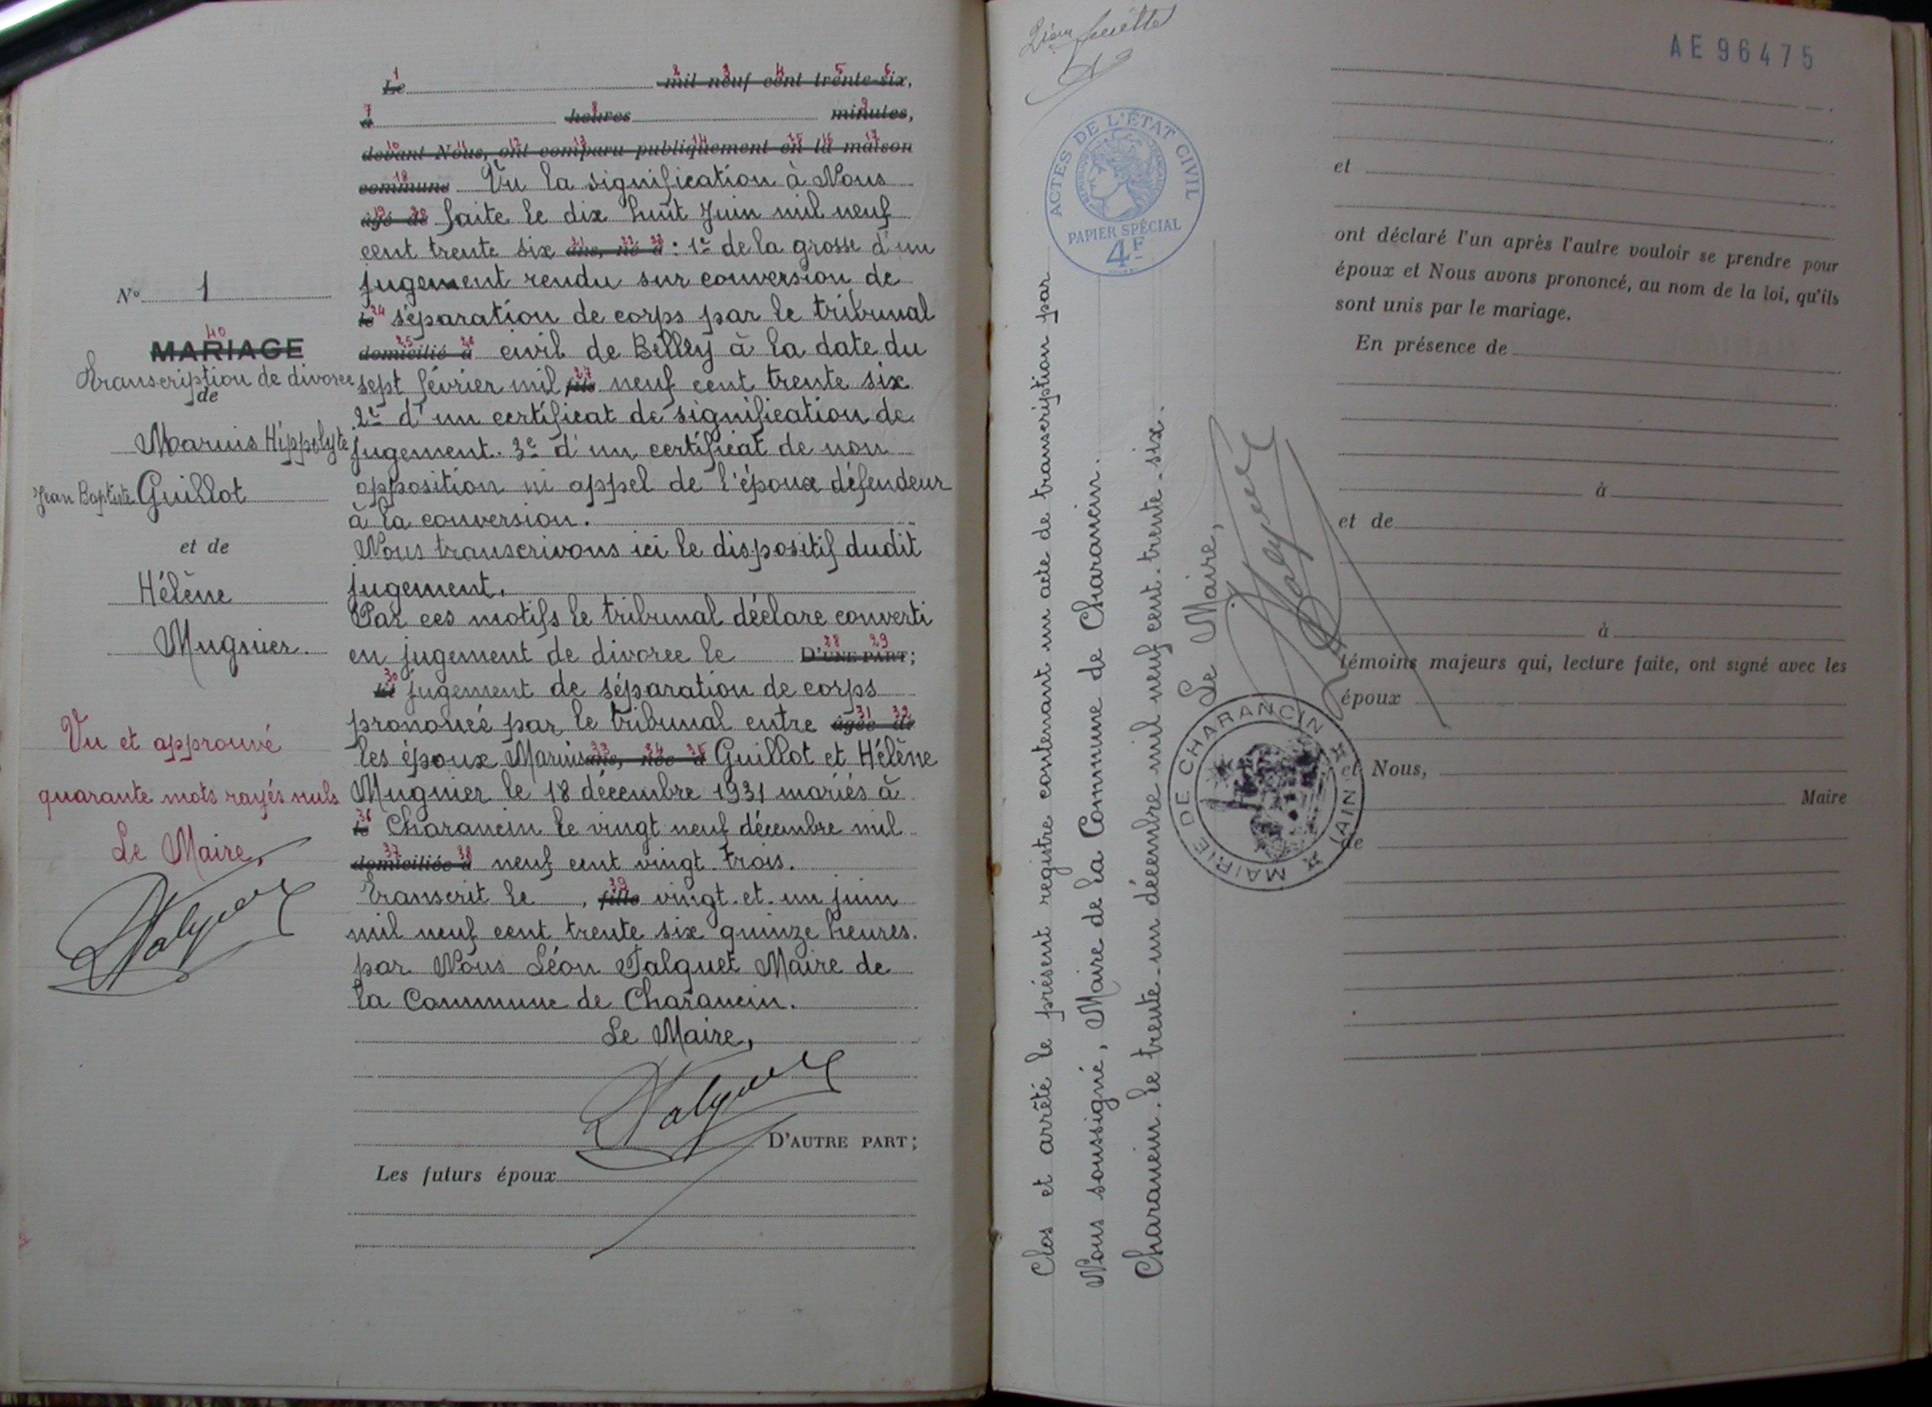 Le mil neuf cent trente-six,
à heures minutes,
devant Nous, ont comparu publiquement en la maison
commune Vu la signification à Nous
âgé de faite le dix huit Juin mil neuf
cent trente six ans, né à : 1er de la grosse d'un
jugement rendu sur conversion de
le séparation de corps par le tribunal
domicilié à civil de Belley à la date du
sept février mil fils neuf cent trente six
2e d'un certificat de signification de
jugement. 3e d'un certificat de non
opposition ni appel de l'époux défendeur
à la conversion.
Nous transcrivons ici le dispositif dudit
jugement.
Par ces motifs le tribunal déclare converti
en jugement de divorce le D'UNE PART;
jugement de séparation de corps
prononcé par le tribunal entre âgée de
les époux Marius ans, née à Guillot et Hélène
Mugnier le 18 décembre 1931 mariés à
le Charancin le vingt neuf décembre mil
domiciliée à neuf cent vingt-trois.
Transcrit le , fille vingt-et-un juin
mil neuf cent trente six quinze heures.
par Nous Léon Falquet Maire de
la Commune de Charancin.
Le Maire,
Falquet
D'AUTRE PART;
Les futurs époux
N° 1
40
MARIAGE
Transcription de divorce
de
Marius Hippolyte
Jean Baptiste Guillot
et de
Hélène
Mugnier.
Vu et approuvé
quarante mots rayés nuls
Le Maire,
Falquet
ACTES DE L'ÉTAT CIVIL
PAPIER SPÉCIAL
4F
Clos et arrêté le présent registre contenant un acte de transcription par
Nous soussigné, Maire de la Commune de Charancin.
Charancin. le trente-un décembre mil neuf cent-trente-six.
Le Maire,
Falquet
MAIRIE DE CHARANCIN (AIN)
AE96475
et
ont déclaré l'un après l'autre vouloir se prendre pour
époux et Nous avons prononcé, au nom de la loi, qu'ils
sont unis par le mariage.
En présence de
à
et de
à
témoins majeurs qui, lecture faite, ont signé avec les
époux
et Nous,
Maire
de